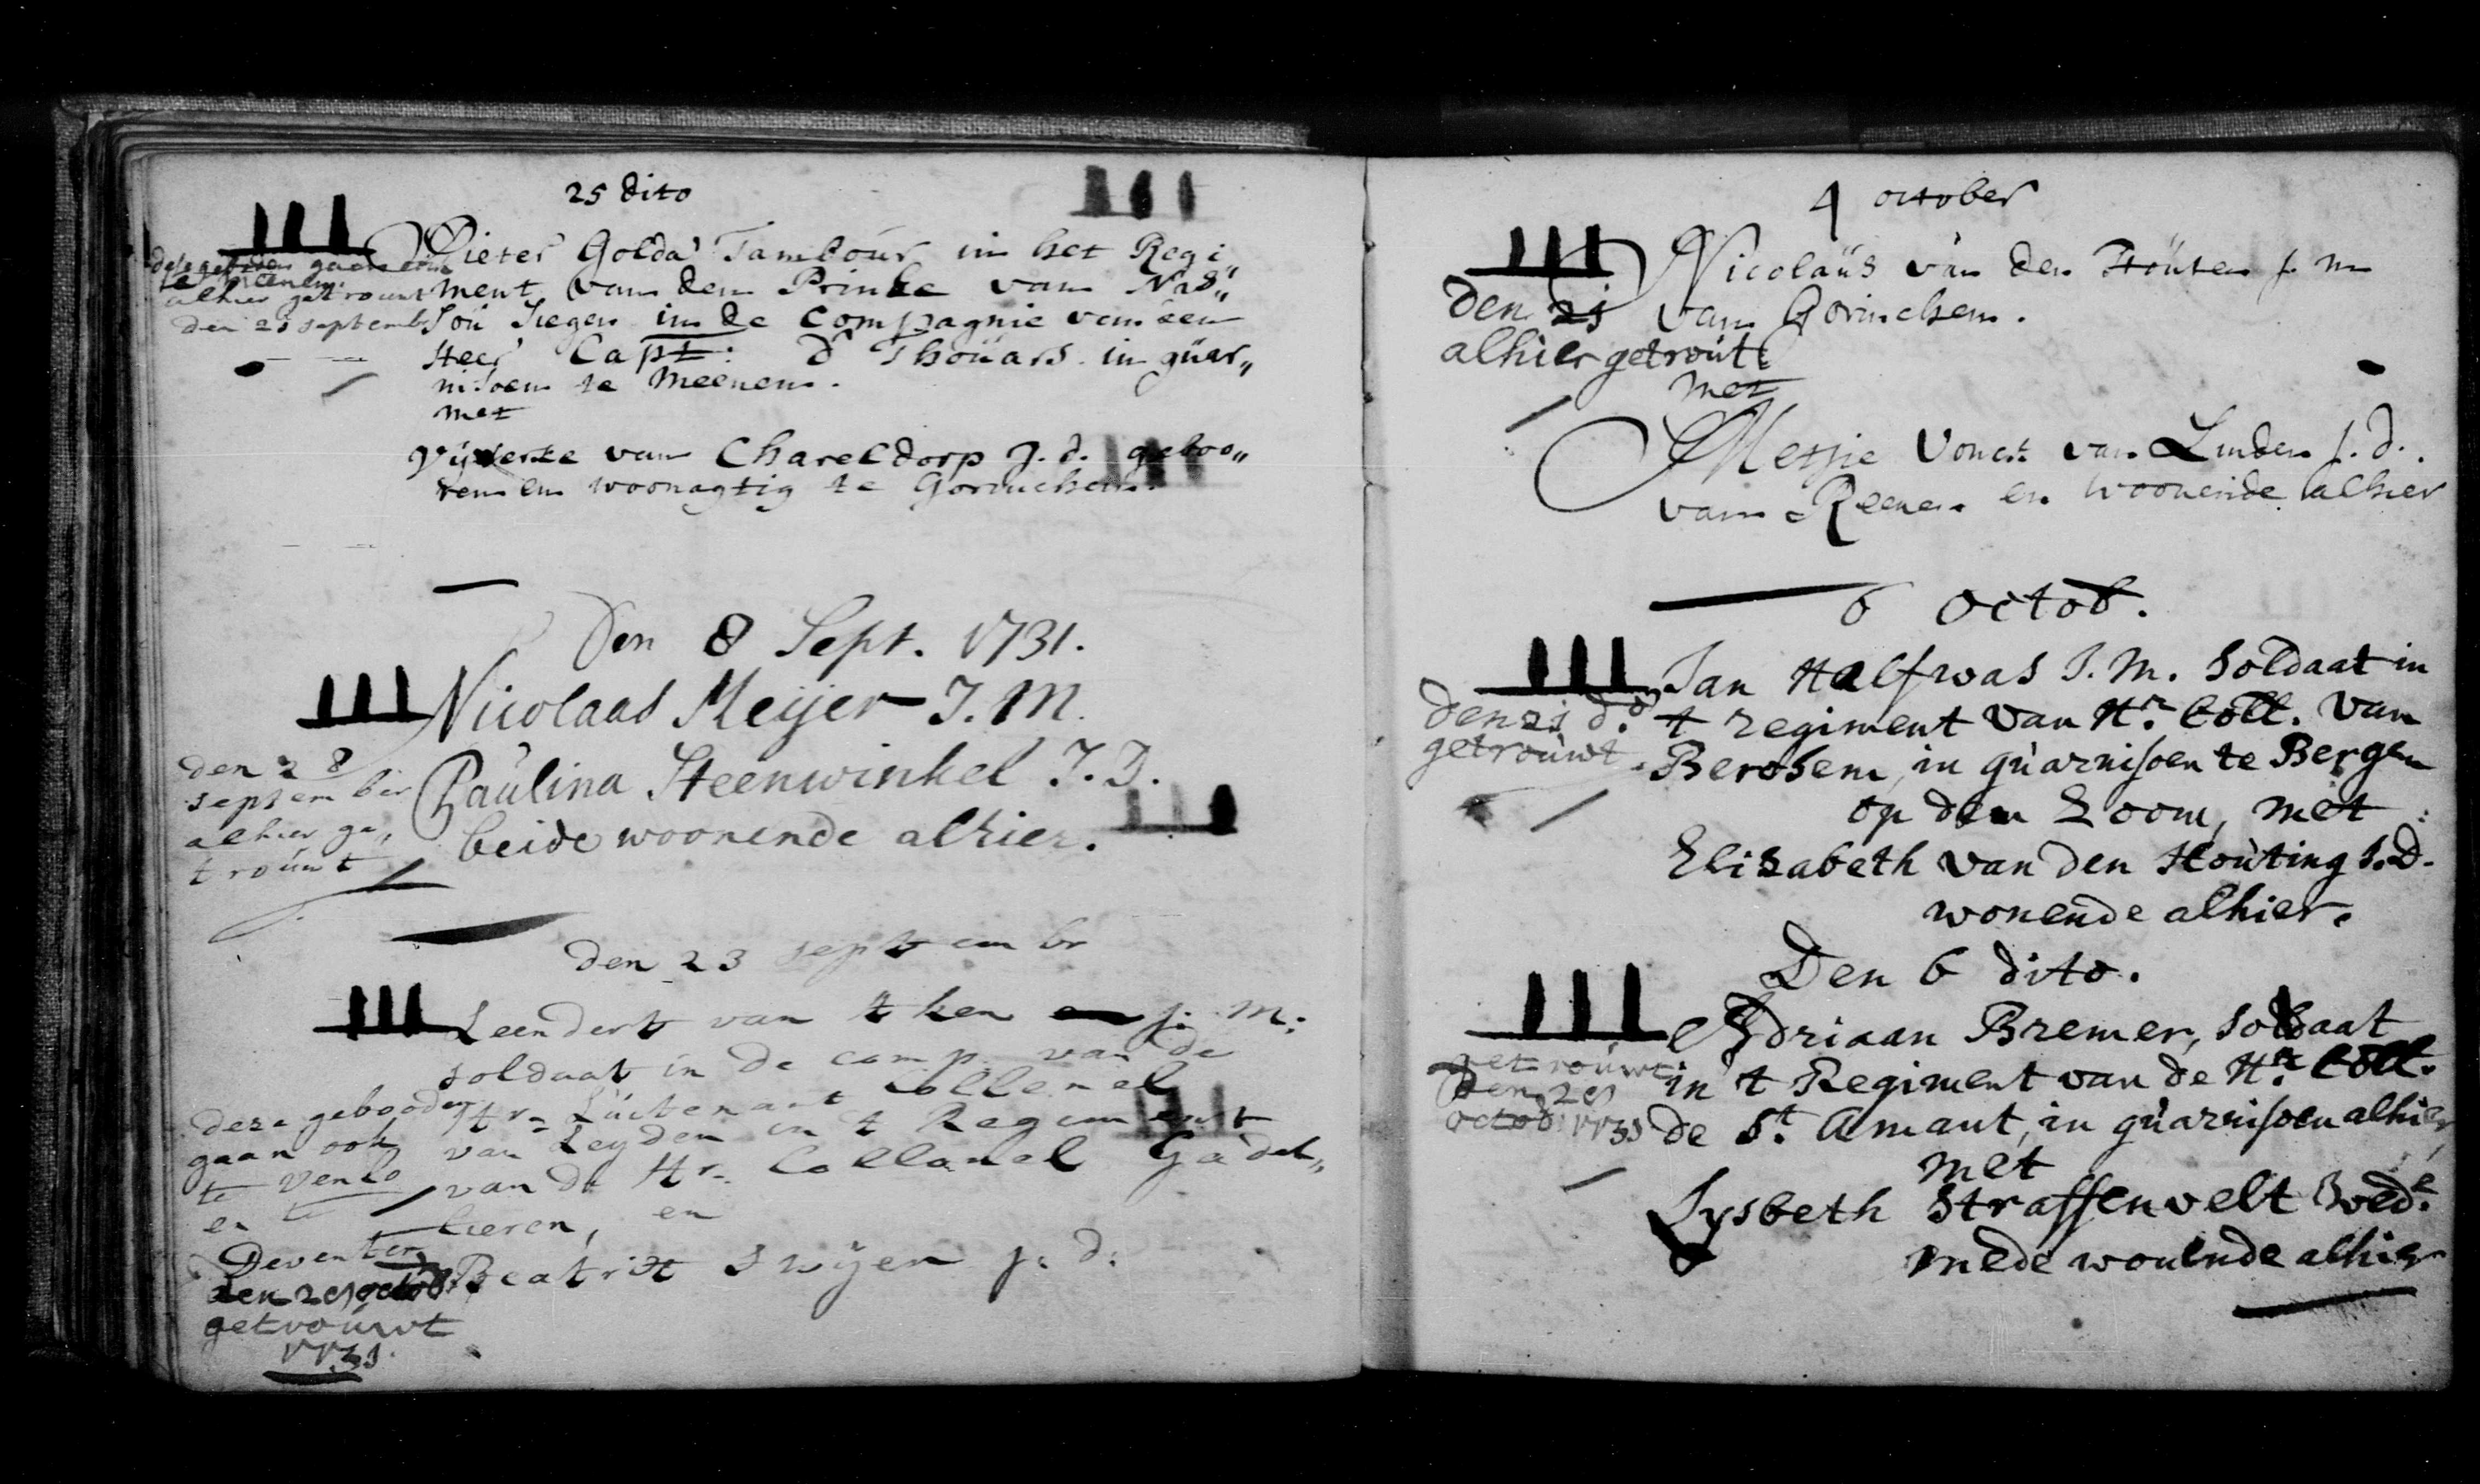 25 dito
Pieter Golda Tambour in het Regi„
ment van den Prinse van Nas„
sou Siegen in de Compagnie van een
Heer Capt: d' Thouars in guar„
nisoen te Meenen.
met
van Chareldorp J. d. geboo„
ren en woonagtig te Gorinchem.
dese geboden gaen
te Meenen
alhier getrouwt
den 21 septemb
Den 8 Sept. 1731.
Nicolaas Meijer J. M.
Paulina Steenwinkel J. D.
beide woonende alhier.
den 28
september
alhier ge,
trouwt
den 23 septembr
Leendert van t hen j: m:
soldaat in de comp. van de
Hr= Luitenant Collenel
van Leyden in t Regiment
van de Hr. Collonel Gadel„
lieren, en
Beatrix Swijen j: d:
deze geboode
gaan ook
te Venlo
en te
Deventer
den 21 octob
getrouwt
1731
4 october
Nicolaus van den Houten j. m
van Gorinchem.
met
Metjie Vonck van Linden j. d.
van Reenen en woonende alhier
den 21
alhier getrout
6 Octob.
Jan Halfwas J. M. Soldaat in
t regiment van Hr. Coll. van
Berchem, in guarnisoen te Bergen
op den Zoom, met
Elisabeth van den Houting J. D.
wonende alhier.
den 21 do.
getrouwt.
Den 6 dito.
Adriaan Bremer, soldaat
in 't Regiment van de Hr. Coll.
de St. Amant, in guarnisoen alhier,
met
Lysbeth Straffenvelt Wede.
mede wonende alhier
getrouwt
den 21
octob: 1731